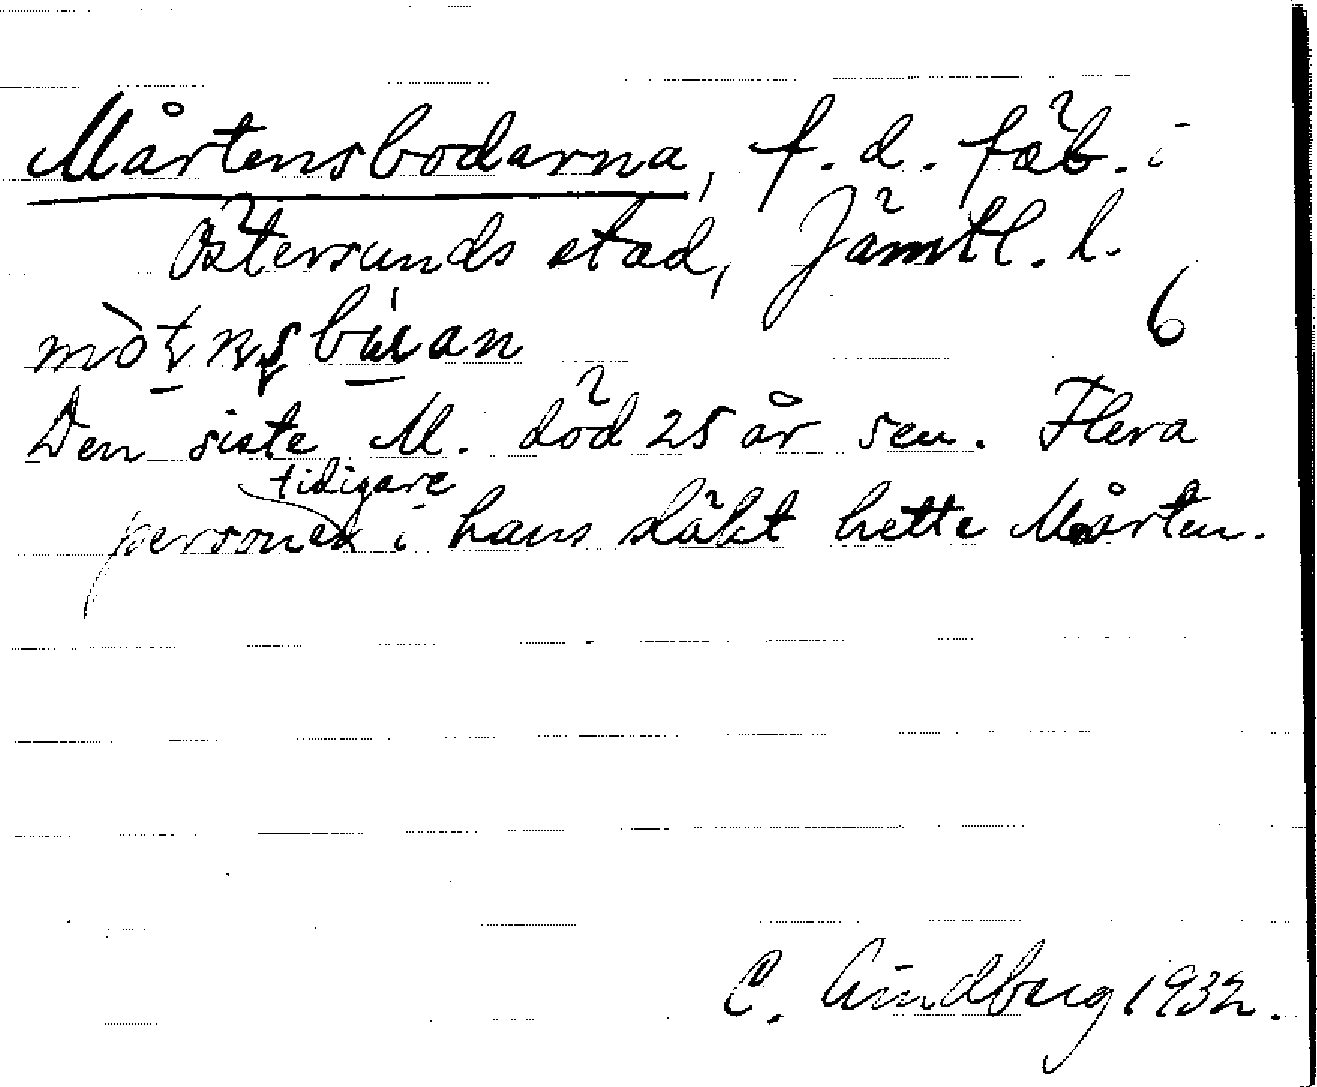 Mårtensbodarna, f. d. fäb. i
Östersunds stad, Jämtl. l.
6
Den siste M. död 25 år sen. Flera
tidigare
personer i hans släkt hette Mårten.
C. Lindberg 1932.